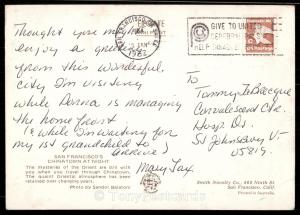 Thought you might
enjoy a greeting
from this wonderful
city I'm visiting
while Donna is managing
the home front
(while I'm waiting for
my 1st grandchild to
arrive)
Mary Fax
SAN FRANCISCO'S
CHINATOWN AT NIGHT
The mysteries of the Orient are still with
you when you travel through Chinatown.
The quaint Oriental atmosphere has been
retained over changing years.
Photo by Sandor Balatoni
1982
GIVE TO UNITED
CEREBRAL
HELP
To
Convalescent Ctr.
Hosp. Dr.
St Johnsbury Vt
05819
Smith Novelty Co., 460 Ninth St
San Francisco, Calif.
Printed in Australia
TonyPostcards